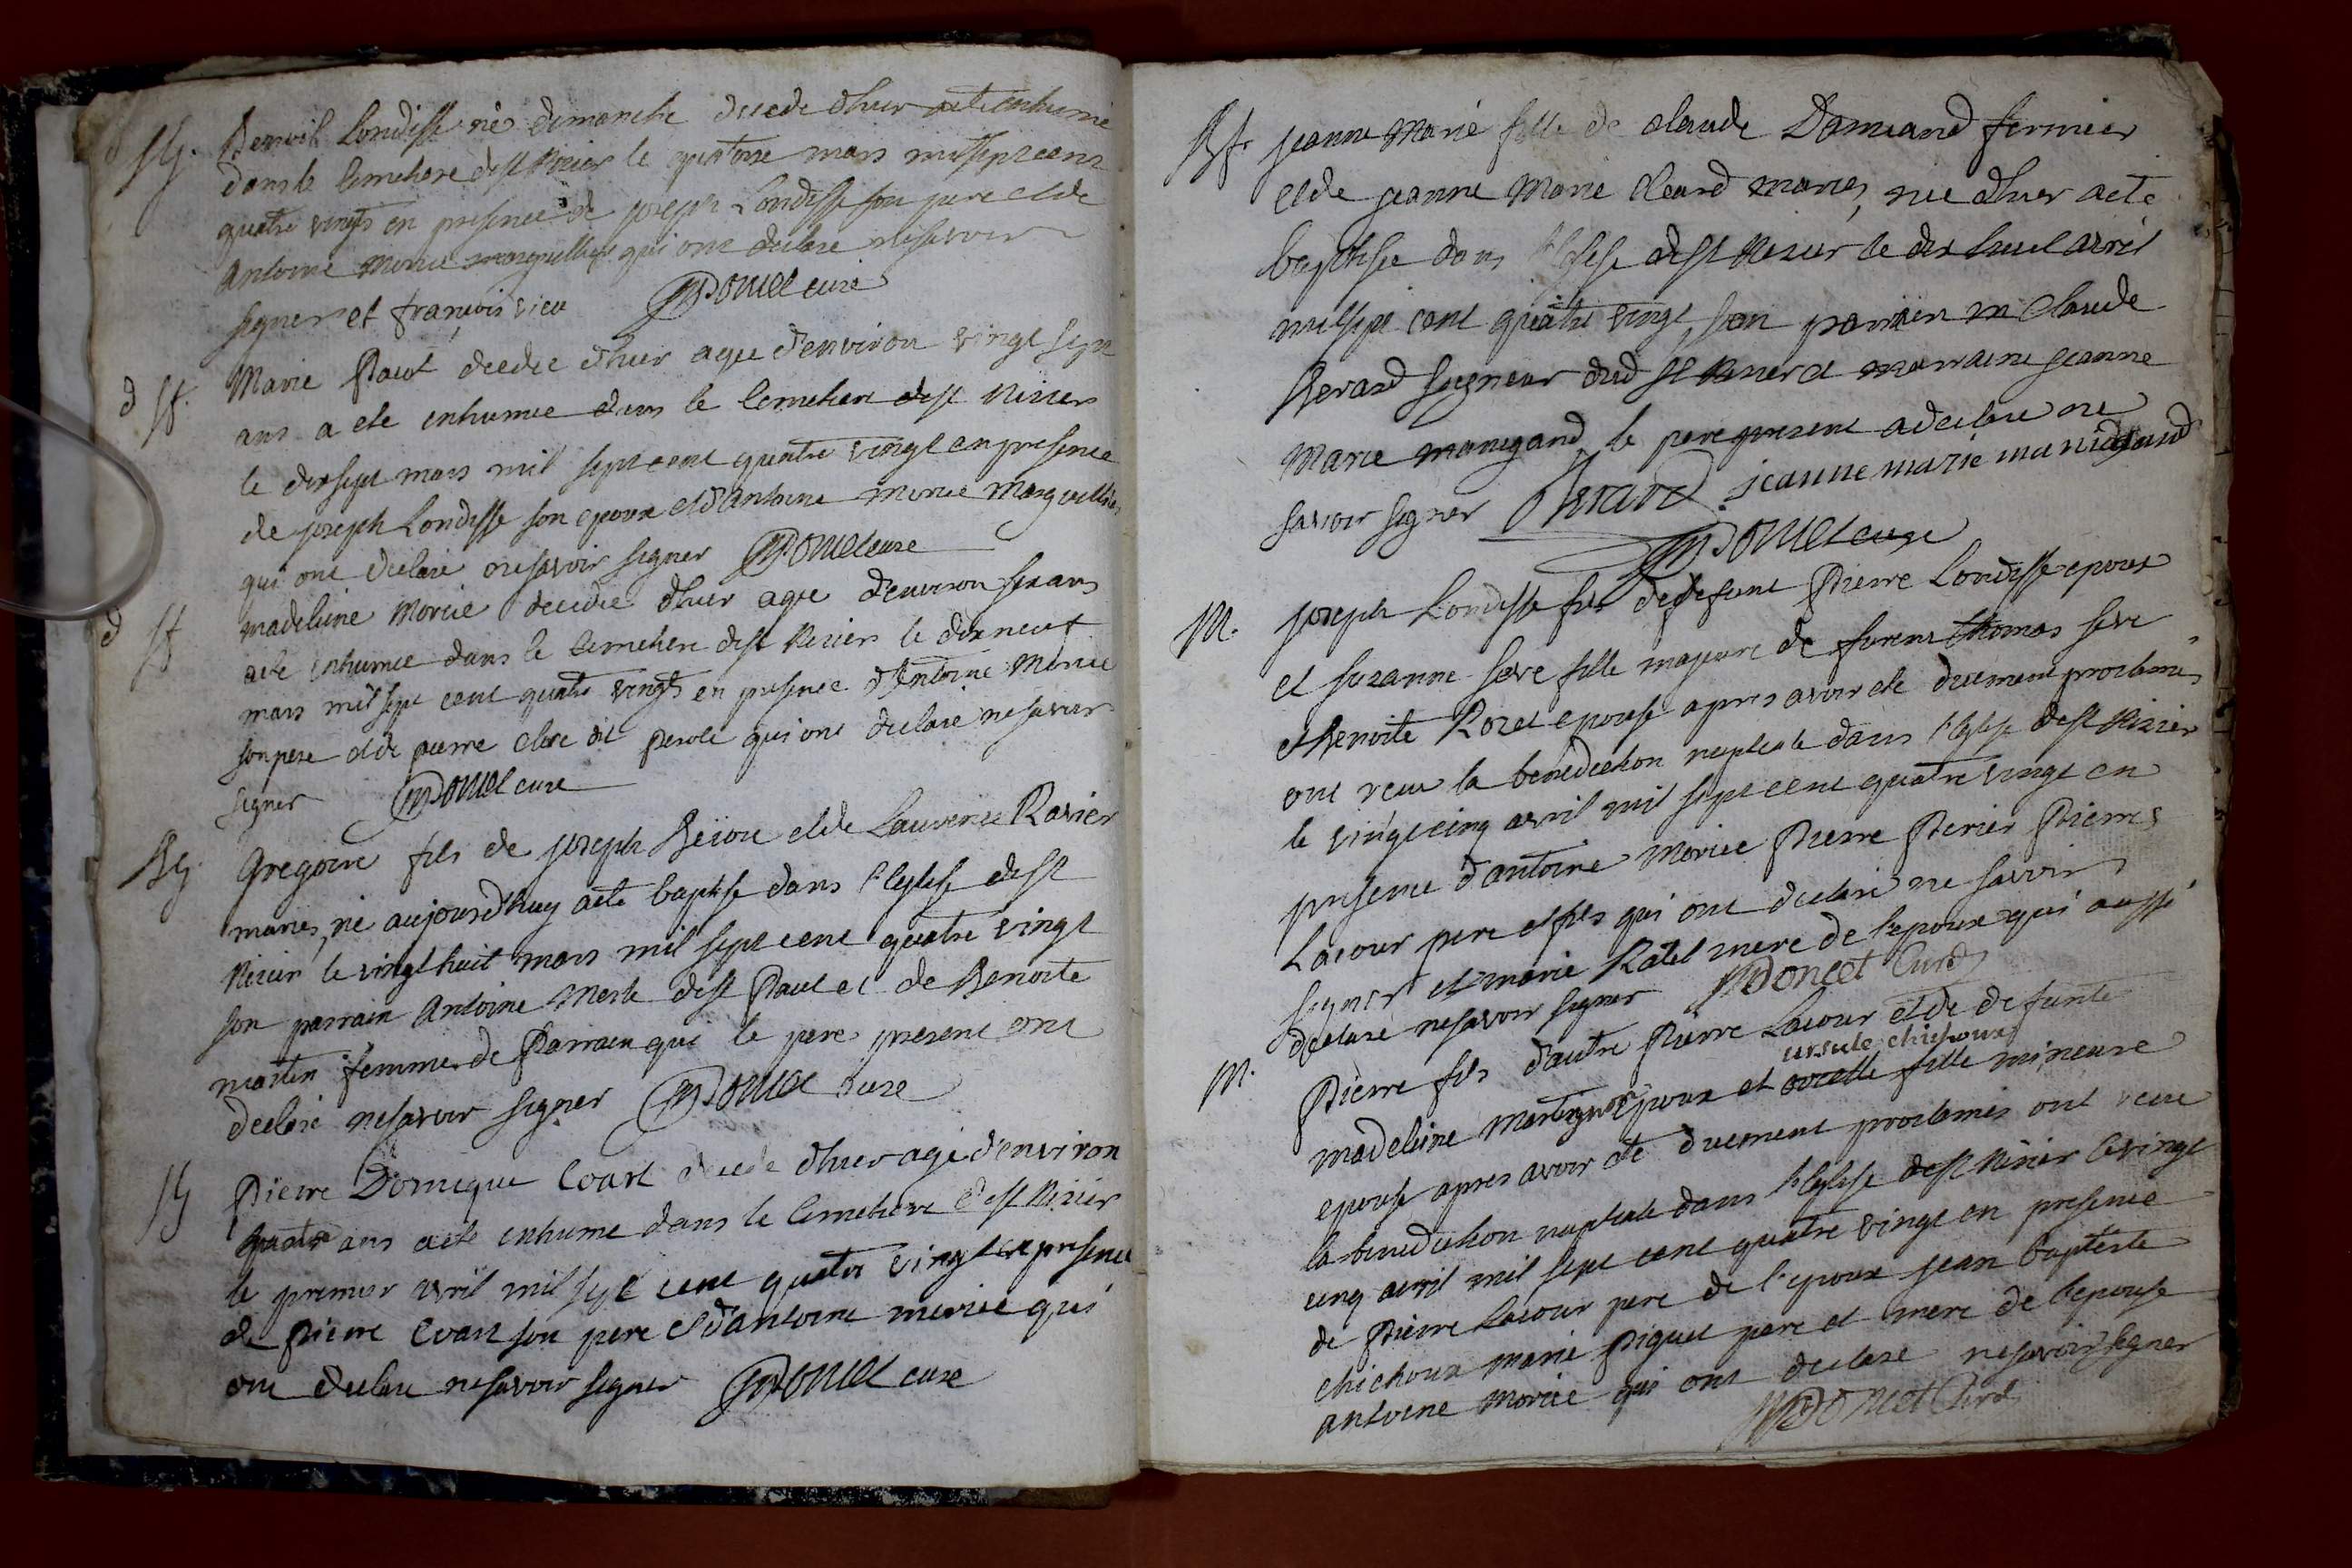 d Sg. Benoit Londisse né dimanche decede d'hier a ete enhumé
dans le Cimetiere de St Nizier le quatorze mars mil sept cent
quatre vingts en presence de joseph Londisse son pere et de
Antoine Morice marguillier qui ont declare ne savoir
signer et françois vieu Doucet curé
d Sf. Marie Paul decedee d'hier agee d'environ vingt sept
ans a ete enhumee dans le Cimetiere de St Nizier
le dix sept mars mil sept cent quatre vingt en presence
de joseph Londisse son epoux et d'antoine morice Marguillier
qui ont declaré ne savoir signer Doucet cure
d Sf madeleine Morice decedee d'hier agee d'environ six ans
a ete enhumee dans le Cimetiere de St Nizier le dix neuf
mars mil sept cent quatre vingts en presence d'Antoine Morice
son pere et de pierre clerc dit qui ont declaré ne savoir
signer Doucet cure
Bg. Gregoire fils de joseph et de Laurence Ravier
mariés, né aujourd'huy a été baptisé dans l'Eglise de St
Nizier le vingt huit mars mil sept cent quatre vingt
son parrain Antoine Merle de St Paul et de Benoite
martin femme de Parrain qui le pere present ont
declaré ne savoir signer Doucet cure
Sg Pierre Domeque Coart decede d'hier agé d'environ
quatre ans a ete enhume dans le Cimetiere de St Nizier
le premier avril mil sept cent quatre vingt en presence
de Pierre Coart son pere et d'antoine morice qui
ont declare ne savoir signer Doucet cure
Bf. jeanne Marie fille de claude Damiand fermier
et de jeanne Marie cleard mariés, nee d'hier a ete
baptisee dans l'Eglise de St Nizier le dix huit avril
mil sept cent quatre vingt, son parrain m Claude
Berard seigneur dud St Nizier et marraine jeanne
Marie manigand, le pere present a declare ne
savoir signer Berard jeanne marie manigand
Doucet cure
M. joseph Londisse fils de defunt Pierre Londisse epoux
et suzanne Seve fille majeure de furent thomas seve
et Benoite Rozet epouse apres avoir ete duement proclamés
ont receu la benediction nuptiale dans l'Eglise de St Nizier
le vingt cinq avril mil sept cent quatre vingt en
presence d'antoine Morice Pierre Perier Pierres
Lacour pere et fils qui ont declaré ne savoir
signer et marie Ratel mere de l'epoux qui aussi
declare ne savoir signer Doncet Curé
M. Pierre fils d'autre Pierre Lacour et de defunte
ursule chichoux
madeleine epoux et fille mineure
epouse apres avoir ete duement proclamés ont receu
la benediction nuptiale dans l'Eglise de St Nizier le vingt
cinq avril mil sept cent quatre vingt en presence
de Pierre Lacour pere de l'epoux jean baptiste
chichoux marie Piquet pere et mere de l'epouse
antoine Morice qui ont declare ne savoir signer
Doncet Curé